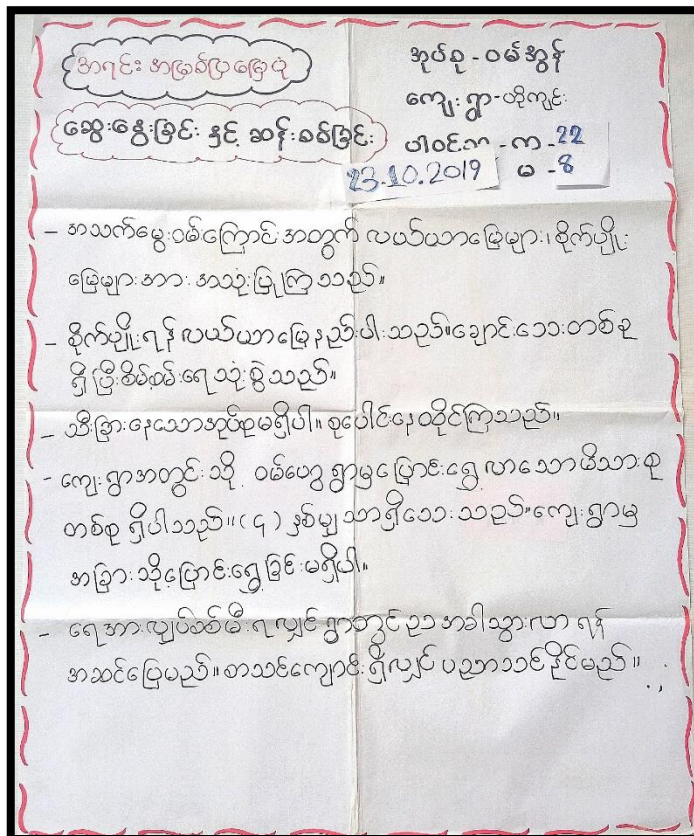 အရင်းအမြစ်ပြမြေပုံ
ဆွေးနွေးခြင်း နှင့် ဆန်းစစ်ခြင်း
အုပ်စု - ဝမ်အွန်
ကျေးရွာ - တိုကျင်း
ပါဝင်သူ - ကျ - 22
မ - 8
23.10.2019
- အသက်မွေးဝမ်းကြောင်းအတွက် လယ်ယာမြေများ၊ စိုက်ပျိုး
မြေများအား အသုံးပြုကြသည်။
- စိုက်ပျိုးရန် လယ်ယာမြေနည်းပါးသည်။ ချောင်းသေးတစ်ခု
ရှိပြီးစိမ့်စမ်းရေသုံးစွဲသည်။
- သီးခြားနေသောအုပ်စုမရှိပါ။ စုပေါင်းနေထိုင်ကြသည်။
- ကျေးရွာအတွင်းသို့ ဝမ်ဟွေရွာမှပြောင်းရွှေ့လာသောမိသားစု
တစ်စု ရှိပါသည်။ (၄) နှစ်မျှသာရှိသေးသည်။ ကျေးရွာမှ
အခြားသို့ပြောင်းရွှေ့ခြင်းမရှိပါ။
- ရေအားလျှပ်စစ်မီးရလျှင် ရွာတွင်ညအခါသွားလာရန်
အဆင်ပြေမည်။ စာသင်ကျောင်းရှိလျှင် ပညာသင်နိုင်မည်။